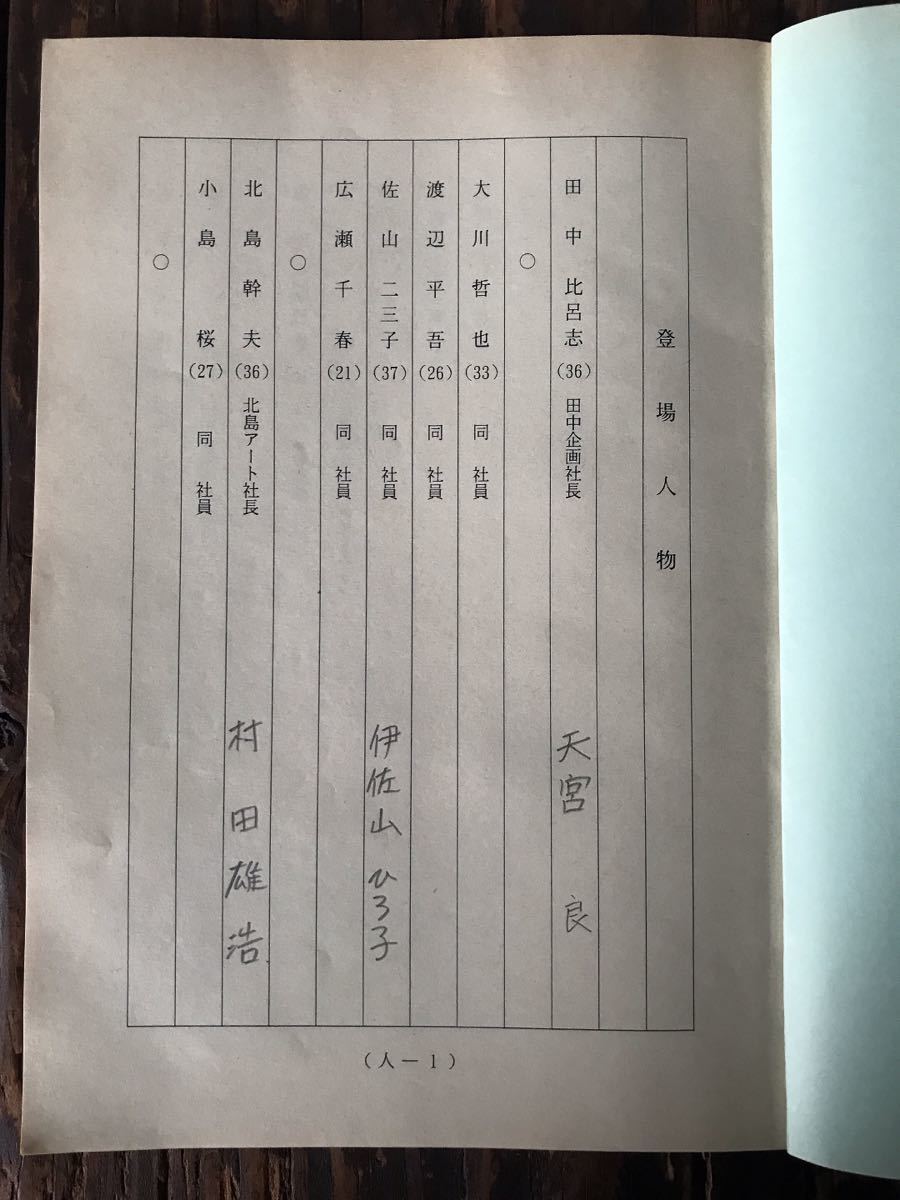 登場人物
田中比呂志(36) 田中企画社長 天宮 良
○
大川哲也(33) 同 社員
渡辺平吾(26) 同 社員
佐山二三子(37) 同 社員 伊佐山ひろ子
広瀬千春(21) 同 社員
○
北島幹夫(36) 北島アート社長 村田雄浩
小島 桜(27) 同 社員
○
(人―1)